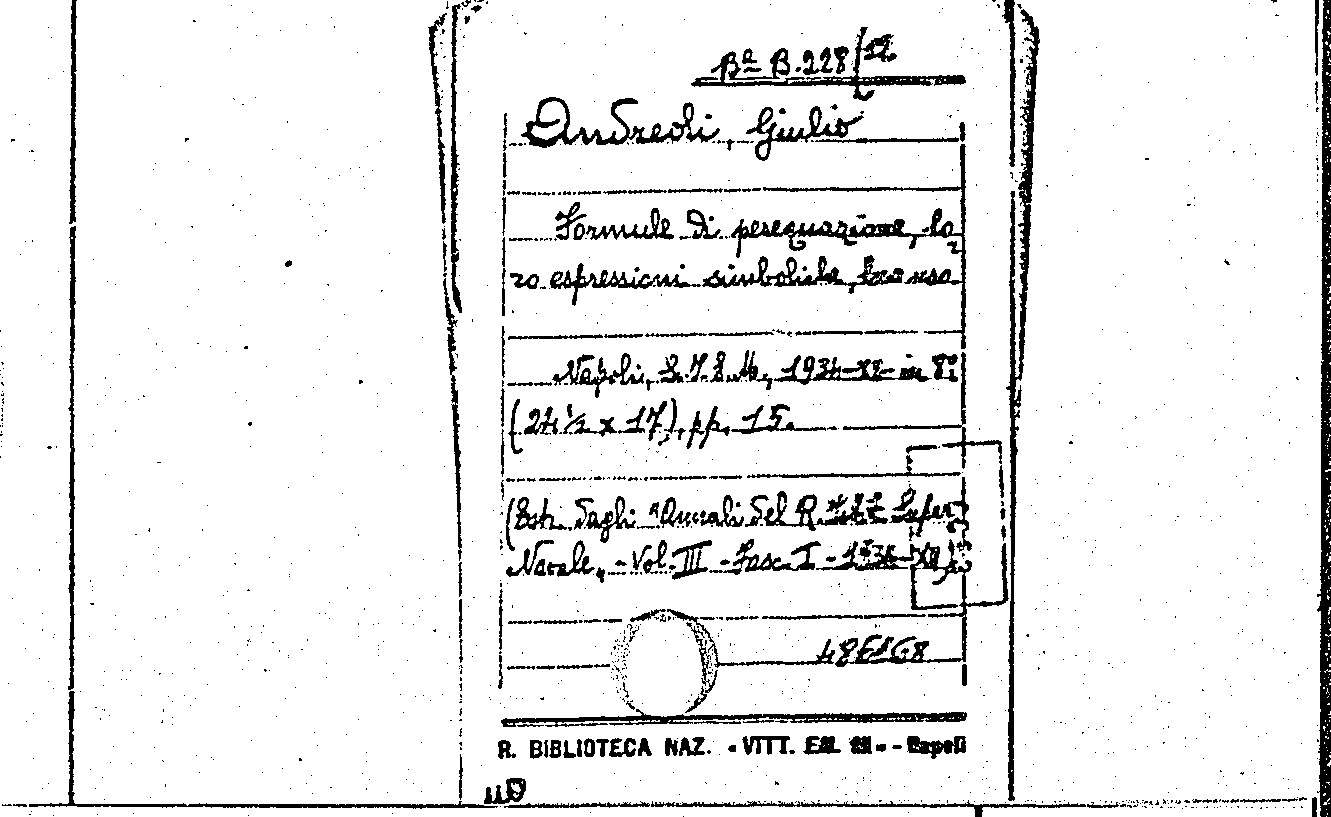 Bª B.228/12.
Andreoli, Giulio
Formule di perequazione, lo-
ro espressioni simboliche, loro uso
Napoli, S.I.E.M., 1934-XII- in 8º
(24 ½ x 17), pp. 15.
(Estr. dagli "Annali del R. Ist. Super.
Navale" - Vol. III - Fasc. I - 1934-XII)
R. BIBLIOTECA NAZ. «VITT. EM. III» - Napoli